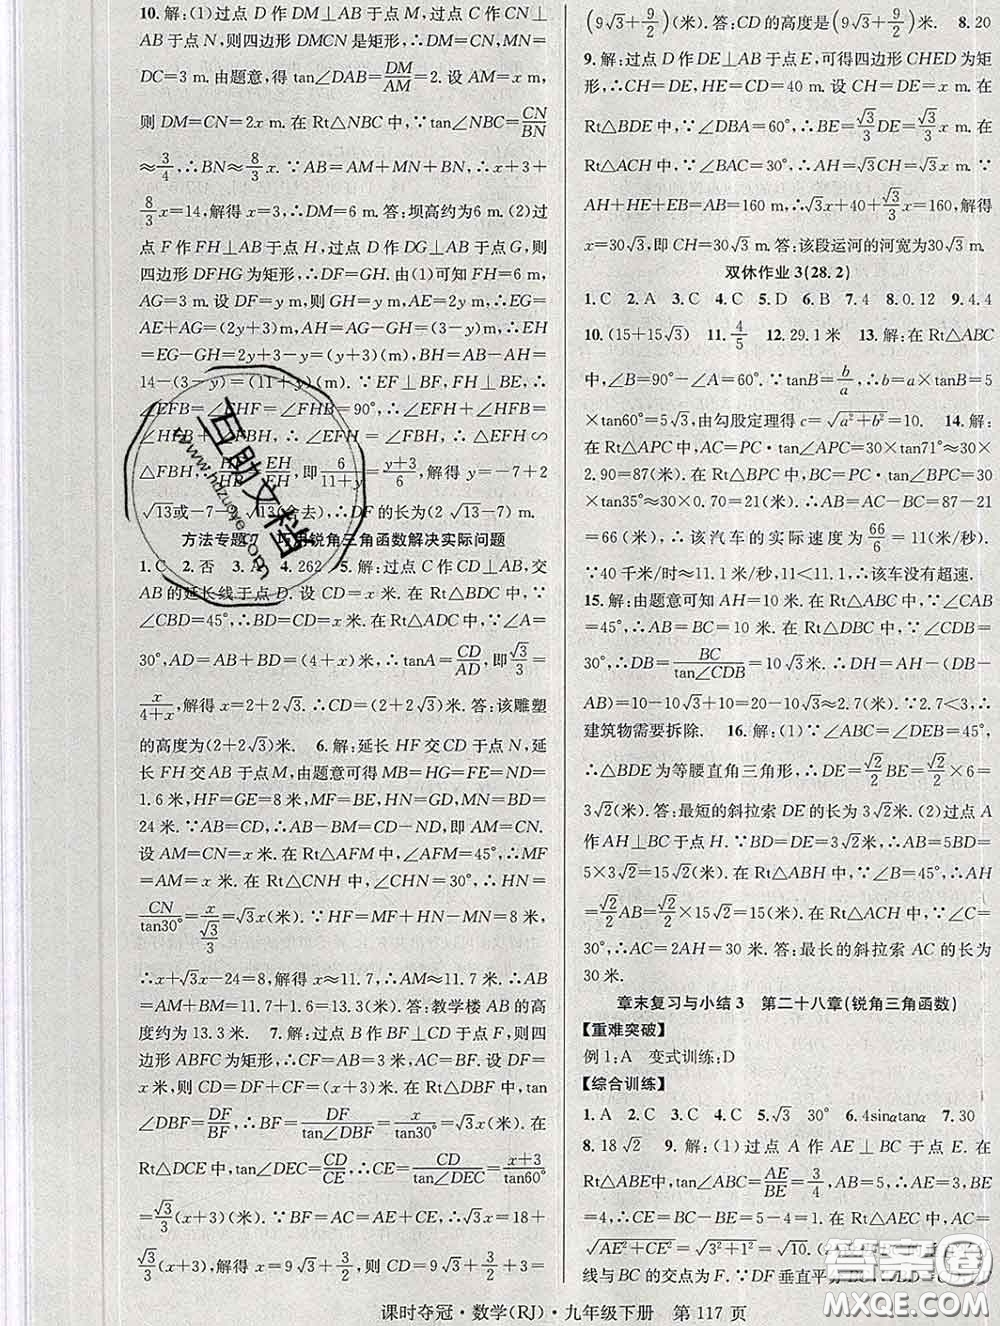 10. 解:(1)过点 D 作 DM⊥AB 于点 M,过点 C 作 CN⊥
AB 于点 N,则四边形 DMCN 是矩形,∴DM=CN,MN=
DC=3 m. 由题意,得 tan∠DAB=DM/AM=2. 设 AM=x m,
则 DM=CN=2x m. 在 Rt△NBC 中,∵tan∠NBC=CN/BN
≈3/4,∴BN≈8/3x m. ∵AB=AM+MN+BN,∴x+3+
8/3x=14,解得 x=3,∴DM=6 m. 答:坝高约为 6 m. (2)过
点 F 作 FH⊥AB 于点 H,过点 D 作 DG⊥AB 于点 G,则
四边形 DFHG 为矩形,∴DF=GH. 由(1)可知 FH=6 m,
AG=3 m. 设 DF=y m,则 GH=y m,AE=2y m,∴EH
=EG-GH=2y+3-y=(y+3)(m). BH=AB-AH=
14-(3-y)=(11+y)(m). ∵EF⊥BF,FH⊥BE,∴
∠EFB=∠EHF=∠FHB=90°. ∴∠EFH+∠HFB=
∠HFB+∠FBH,∴∠EFH=∠FBH,∴△EFH∽
△FBH,∴HF/HB=EH/FH,即6/(11+y)=(y+3)/6,解得 y=-7+2
√13或-7-2√13(舍去),∴DF 的长为(2√13-7) m.
方法专题7 巧用锐角三角函数解决实际问题
1. C 2. 否 3. A 4. 262 5. 解:过点 C 作 CD⊥AB,交
AB 的延长线于点 D. 设 CD=x 米. 在 Rt△CBD 中,∵
∠CBD=45°,∴BD=CD=x 米. 在 Rt△ADC 中,∵∠A=
30°,AD=AB+BD=(4+x)米,∴tanA=CD/AD,即√3/3=
x/(4+x),解得 x=2+2√3. ∴CD=(2+2√3)米. 答:该雕塑
的高度为(2+2√3)米. 6. 解:延长 HF 交 CD 于点 N,延
长 FH 交 AB 于点 M,由题意可得 MB=HG=FE=ND=
1.6 米,HF=GE=8 米,MF=BE,HN=GD,MN=BD=
24 米. ∵AB=CD,∴AB-BM=CD-ND,即 AM=CN.
设 AM=CN=x 米. 在 Rt△AFM 中,∠AFM=45°,∴MF
=AM=x 米. 在 Rt△CNH 中,∠CHN=30°,∴HN=
CN/tan30°=x/(√3/3)=√3x(米). ∵HF=MF+HN-MN=8 米,
∴x+√3x-24=8,解得 x≈11.7,∴AM≈11.7 米. ∴AB
=AM+MB=11.7+1.6=13.3(米). 答:教学楼 AB 的高
度约为 13.3 米. 7. 解:过点 B 作 BF⊥CD 于点 F,则四
边形 ABFC 为矩形,∴CF=AB=3 米,AC=BF. 设 DF=
x 米,则 CD=DF+CF=(x+3)米. 在 Rt△DBF 中,tan
∠DBF=DF/BF,∴BF=DF/tan∠DBF=x/tan30°=√3x(米). 在
Rt△DCE 中,tan∠DEC=CD/CE,∴CE=CD/tan∠DEC=(x+3)/tan60°=
√3/3(x+3)(米). ∵BF=AC=AE+CE,∴√3x=18+
√3/3(x+3),解得 x=9√3+3/2,∴CD=9√3+3/2+3=
(9√3+9/2)(米). 答:CD 的高度是(9√3+9/2)米. 8. 20
9. 解:过点 D 作 DE⊥AB 于点 E,可得四边形 CHED 为矩
形,∴CH=DE,HE=CD=40 m. 设 CH=DE=x m. 在
Rt△BDE 中,∵∠DBA=60°,∴BE=√3/3DE=√3/3x m. 在
Rt△ACH 中,∵∠BAC=30°,∴AH=√3CH=√3x m. ∵
AH+HE+EB=AB=160 m,∴√3x+40+√3/3x=160,解得
x=30√3,即 CH=30√3 m. 答:该段运河的河宽为30√3 m.
双休作业 3(28.2)
1. C 2. A 3. C 4. C 5. D 6. B 7. 4 8. 0.12 9. 4.4
10. (15+15√3) 11. 4/5 12. 29.1 米 13. 解:在 Rt△ABC
中,∠B=90°-∠A=60°. ∵tanB=b/a,∴b=a×tanB=5
×tan60°=5√3,由勾股定理得 c=√(a²+b²)=10. 14. 解:
在 Rt△APC 中,AC=PC·tan∠APC=30×tan71°≈30×
2.90=87(米). 在 Rt△BPC 中,BC=PC·tan∠BPC=30×
tan35°≈30×0.70=21(米),∴AB=AC-BC=87-21
=66(米),∴该汽车的实际速度为66/6=11(米/秒).
∵40 千米/时≈11.1 米/秒,11<11.1,∴该车没有超速.
15. 解:由题意可知 AH=10 米. 在 Rt△ABC 中,∵∠CAB
=45°,∴AB=BC=10 米. 在 Rt△DBC 中,∵∠CDB=
30°,∴DB=BC/tan∠CDB=10√3米. ∴DH=AH-(DB-
AB)=10-10√3+10=20-10√3≈2.7(米). ∵2.7<3,∴
建筑物需要拆除. 16. 解:(1)∵∠ABC=∠DEB=45°,
∴△BDE 为等腰直角三角形,∴DE=√2/2BE=√2/2×6=
3√2(米). 答:最短的斜拉索 DE 的长为 3√2米. (2)过点 A
作 AH⊥BC 于点 H. ∵BD=DE=3√2米,∴AB=5BD=
5×3√2=15√2(米). 在 Rt△ABH 中,∵∠B=45°,∴AH
=√2/2AB=√2/2×15√2=15(米). 在 Rt△ACH 中,∵∠C=
30°,∴AC=2AH=30 米. 答:最长的斜拉索 AC 的长为
30 米.
章末复习与小结 3 第二十八章(锐角三角函数)
【重难突破】
例 1:A 变式训练:D
【综合训练】
1. A 2. C 3. C 4. C 5. √3 30° 6. 4sinαtanα 7. 30
8. 18√2 9. 解:(1)过点 A 作 AE⊥BC 于点 E. 在
Rt△ABE中,tan∠ABC=AE/BE=3/4,AB=5,∴AE=3,BE
=4,∴CE=BC-BE=5-4=1. 在 Rt△AEC 中,AC=
√(AE²+CE²)=√(3²+1²)=√10. (2)
线与 BC 的交点为 F. ∵DF 垂直平分
课时夺冠·数学(RJ)·九年级下册 第 117 页
互助文档
www.hdzuoye.com
答案圈
MXQE.COM